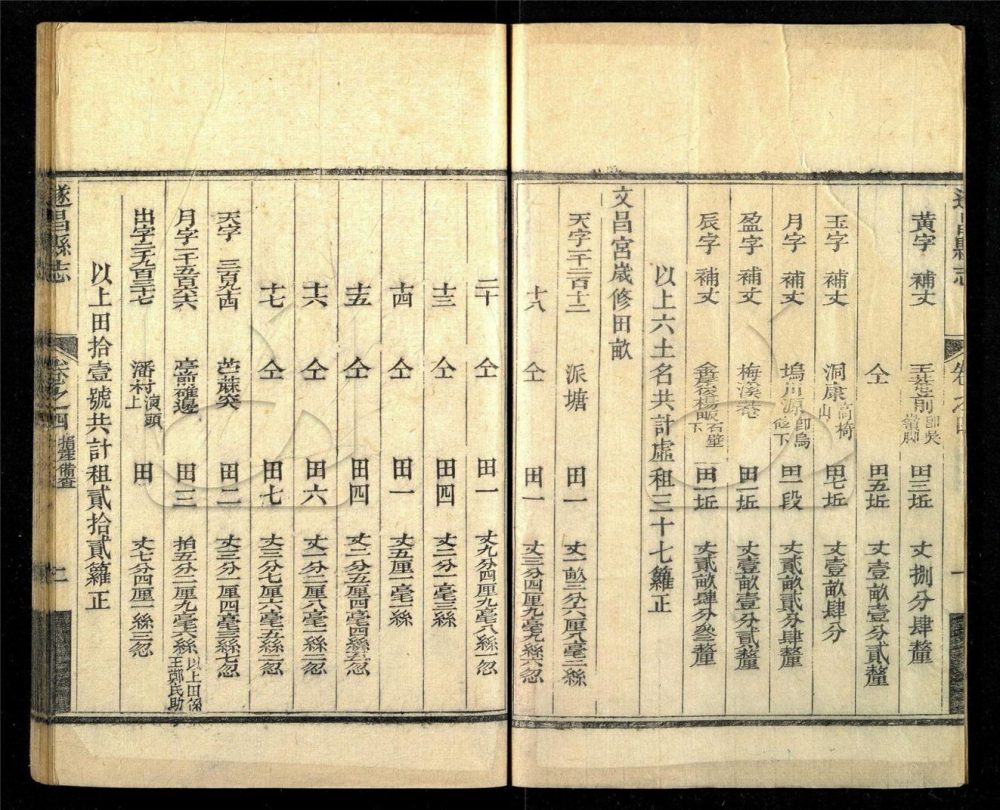 黃字 補丈 前 卽吳嶺脚 田三坵 丈捌分肆釐
仝 田五坵 丈壹畝壹分貳釐
玉字 補丈 洞康 高椅山 田七坵 丈壹畝肆分
月字 補丈 塢川源 卽烏條下 田一段 丈貳畝貳分肆釐
盈字 補丈 梅溪 田一坵 丈壹畝壹分貳釐
辰字 補丈 後楊畈 石壁下 田一坵 丈貳畝肆分叁釐
以上六土名共計虛租三十七籮正
文昌宮歲修田畝
天字一千二百十二 派塘 田一 丈一畝三分六厘八毫二絲
十八 仝 田一 丈三分四厘九毫九絲六忽
二十 仝 田一 丈九分四厘九毫八絲一忽
十三 仝 田四 丈二分一毫三絲
十四 仝 田一 丈五厘一毫一絲
十五 仝 田四 丈二分五厘四毫四絲五忽
十六 仝 田六 丈一分二厘八毫一絲一忽
十七 仝 田七 丈三分七厘六毫五絲一忽
天字 三百九十四 苎蔴突 田二 丈三分一厘四毫三絲七忽
月字二千五百六十六 亭前碓邊 田三 拍五分二厘九毫六絲 以上田係王鄭氏助
出字二千九百三十七 潘村 演頭上 田 丈七分四厘一絲三忽
以上田拾壹號共計租貳拾貳籮正
遂昌縣志 卷之四